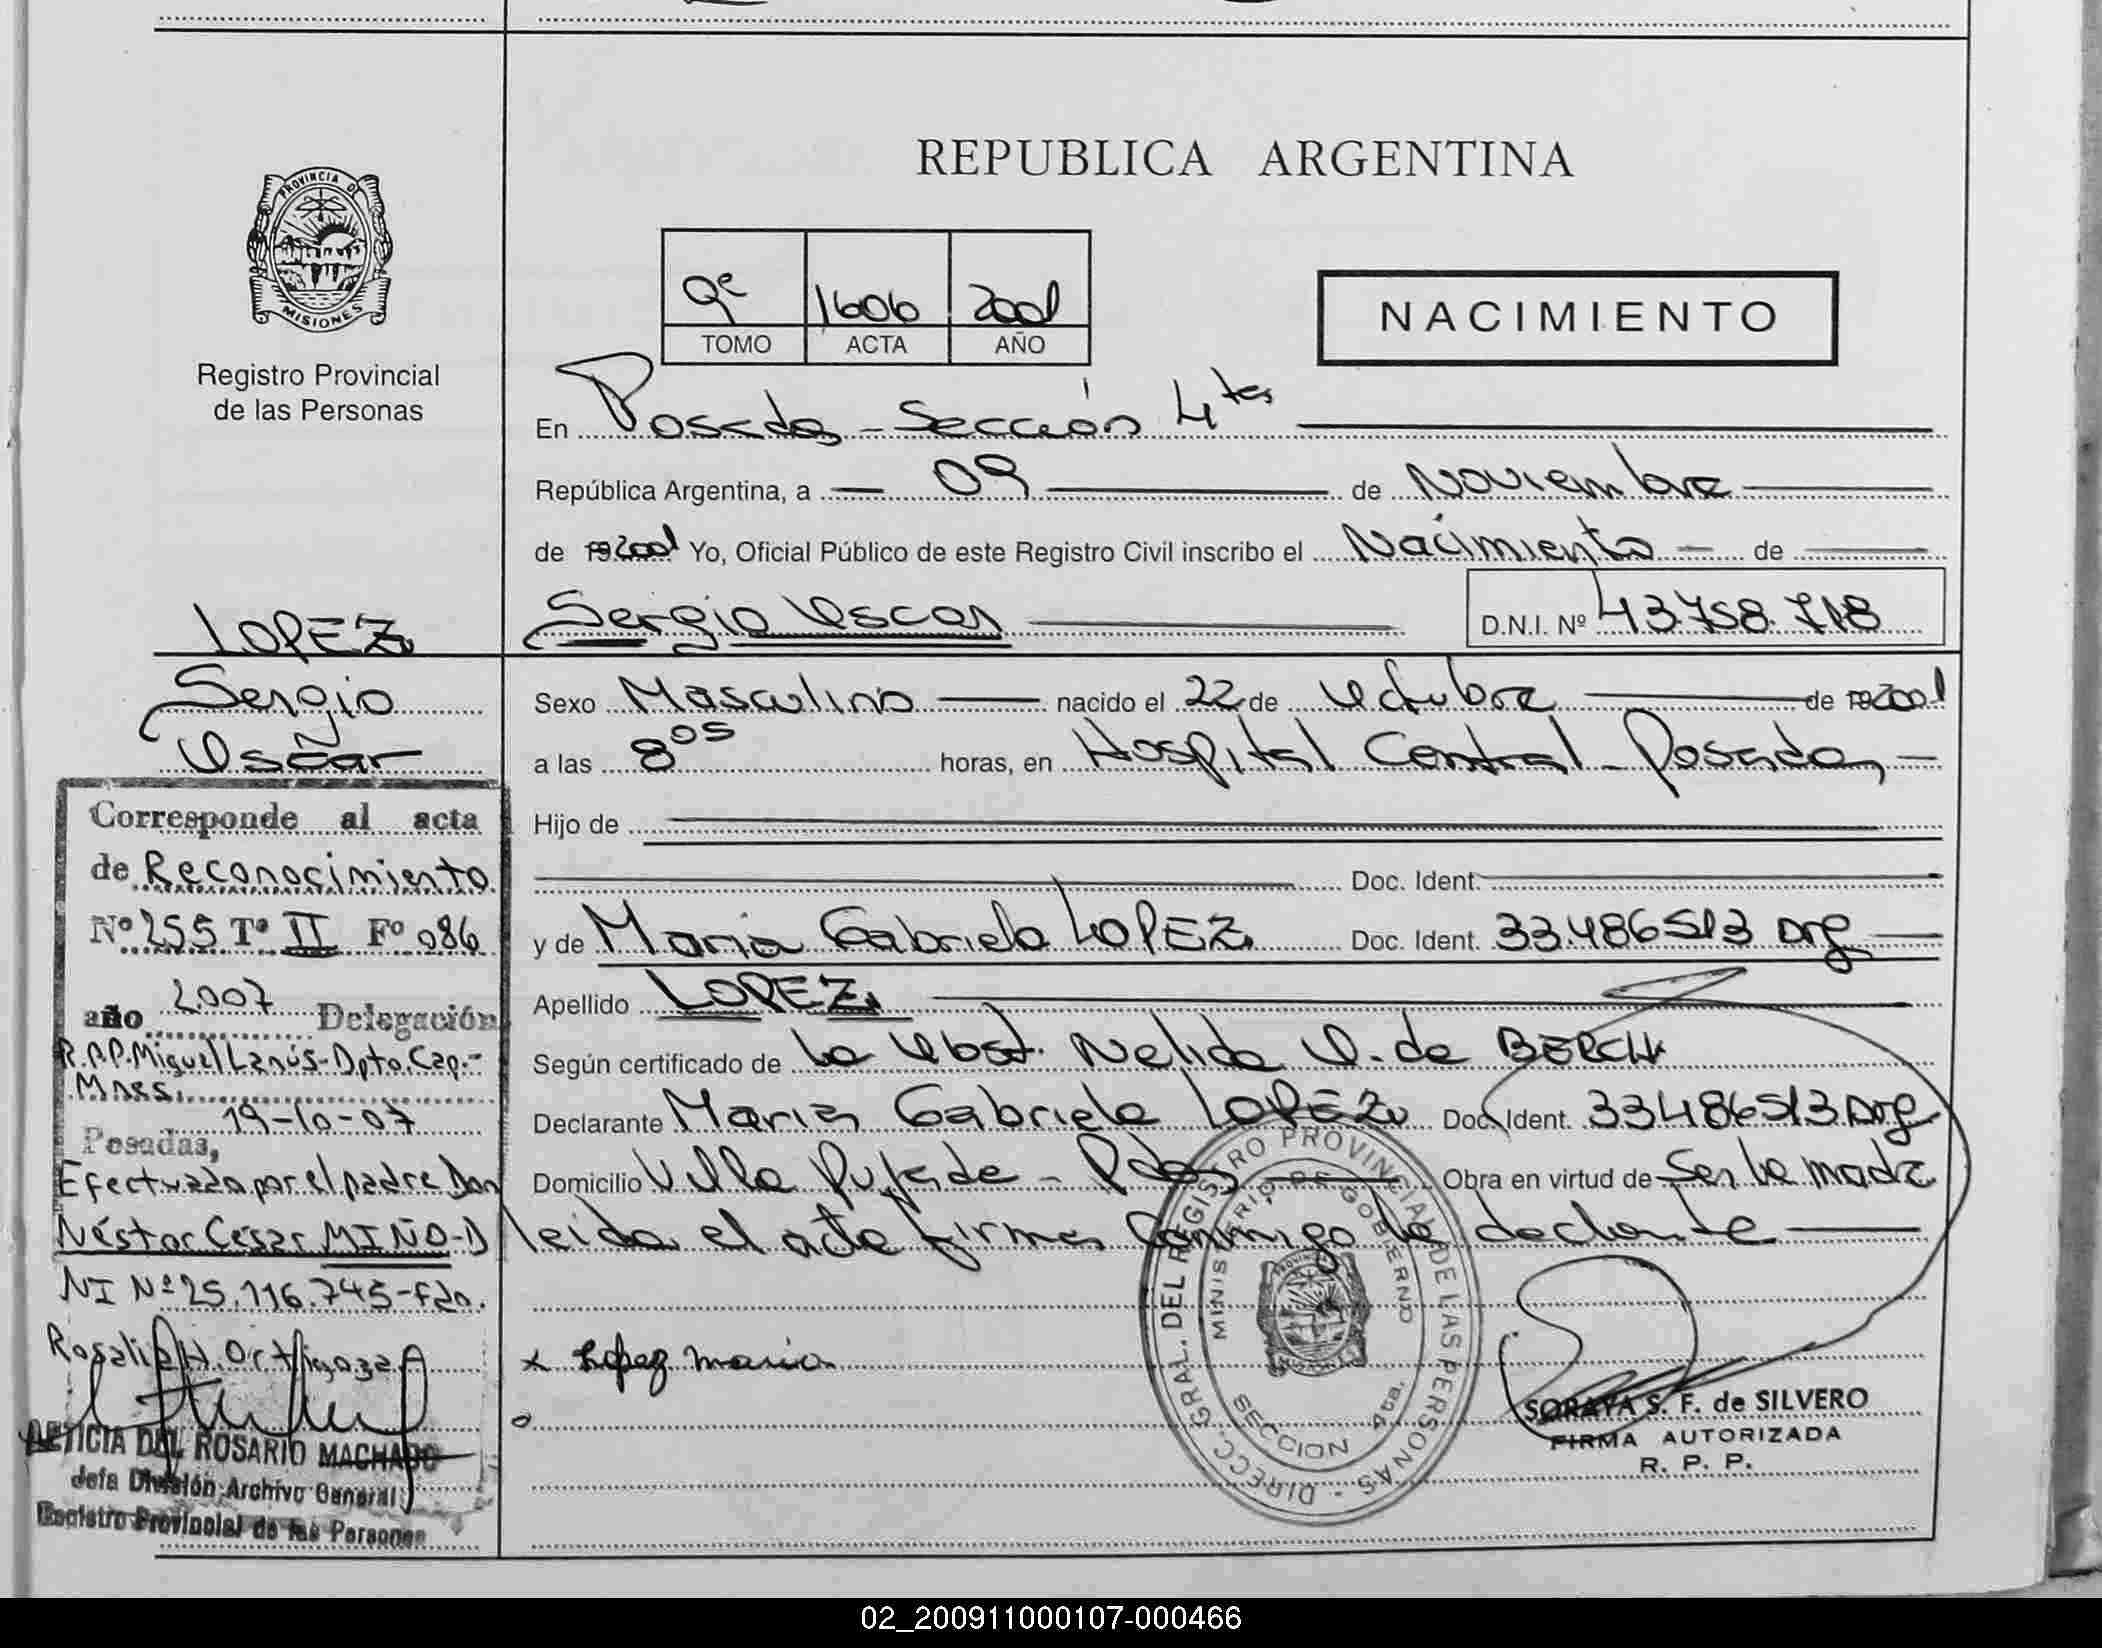 REPUBLICA ARGENTINA
PROVINCIA DE
MISIONES
Registro Provincial
de las Personas
9º 1606 2001
TOMO ACTA AÑO
NACIMIENTO
En Posadas - Sección 4ta
República Argentina, a 09 de Noviembre
de 2001 Yo, Oficial Público de este Registro Civil inscribo el Nacimiento de
Sergio Oscar D.N.I. Nº 43.758.718
LOPEZ
Sergio
Oscar
Sexo Masculino nacido el 22 de Octubre de 2001
a las 8⁰⁵ horas, en Hospital Central - Posadas
Hijo de
Doc. Ident.
y de Maria Gabriela LOPEZ Doc. Ident. 33.486513 Arg
Apellido LOPEZ
Según certificado de la Obst. Nelida O. de BERCH
Declarante Maria Gabriela LOPEZ Doc. Ident. 33486513 Arg
Domicilio Villa - Pdas Obra en virtud de Ser la madre
leida el acta firma conmigo la
x Lopez maria
DIRECC. GRAL. DEL REGISTRO PROVINCIAL DE LAS PERSONAS
MINISTERIO DE GOBIERNO
SECCION 4ta.
SORAYA S. F. de SILVERO
FIRMA AUTORIZADA
R. P. P.
Corresponde al acta
de Reconocimiento
Nº 255 Tº II Fº 086
año 2.007 Delegación
R.P.P. Miguel Lanús - Dpto. Cap.-
Mnes.
Posadas, 19-10-07
Efectuada por el padre Don
Néstor César MIÑO - D
NI Nº 25.116.745 - Fdo.
Rosalia H. Ortigoza
LETICIA DEL ROSARIO MACHADO
Jefa División Archivo General
Registro Provincial de las Personas
02_200911000107-000466